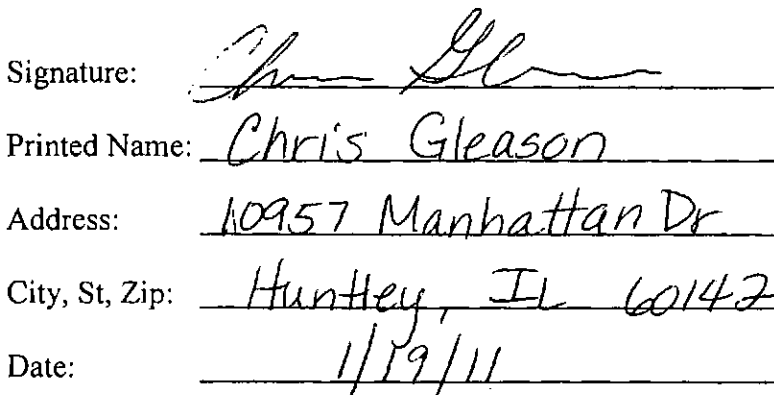 Signature: Chris Gleason
Printed Name: Chris Gleason
Address: 10957 Manhattan Dr
City, St, Zip: Huntley, IL 60142
Date: 1/19/11